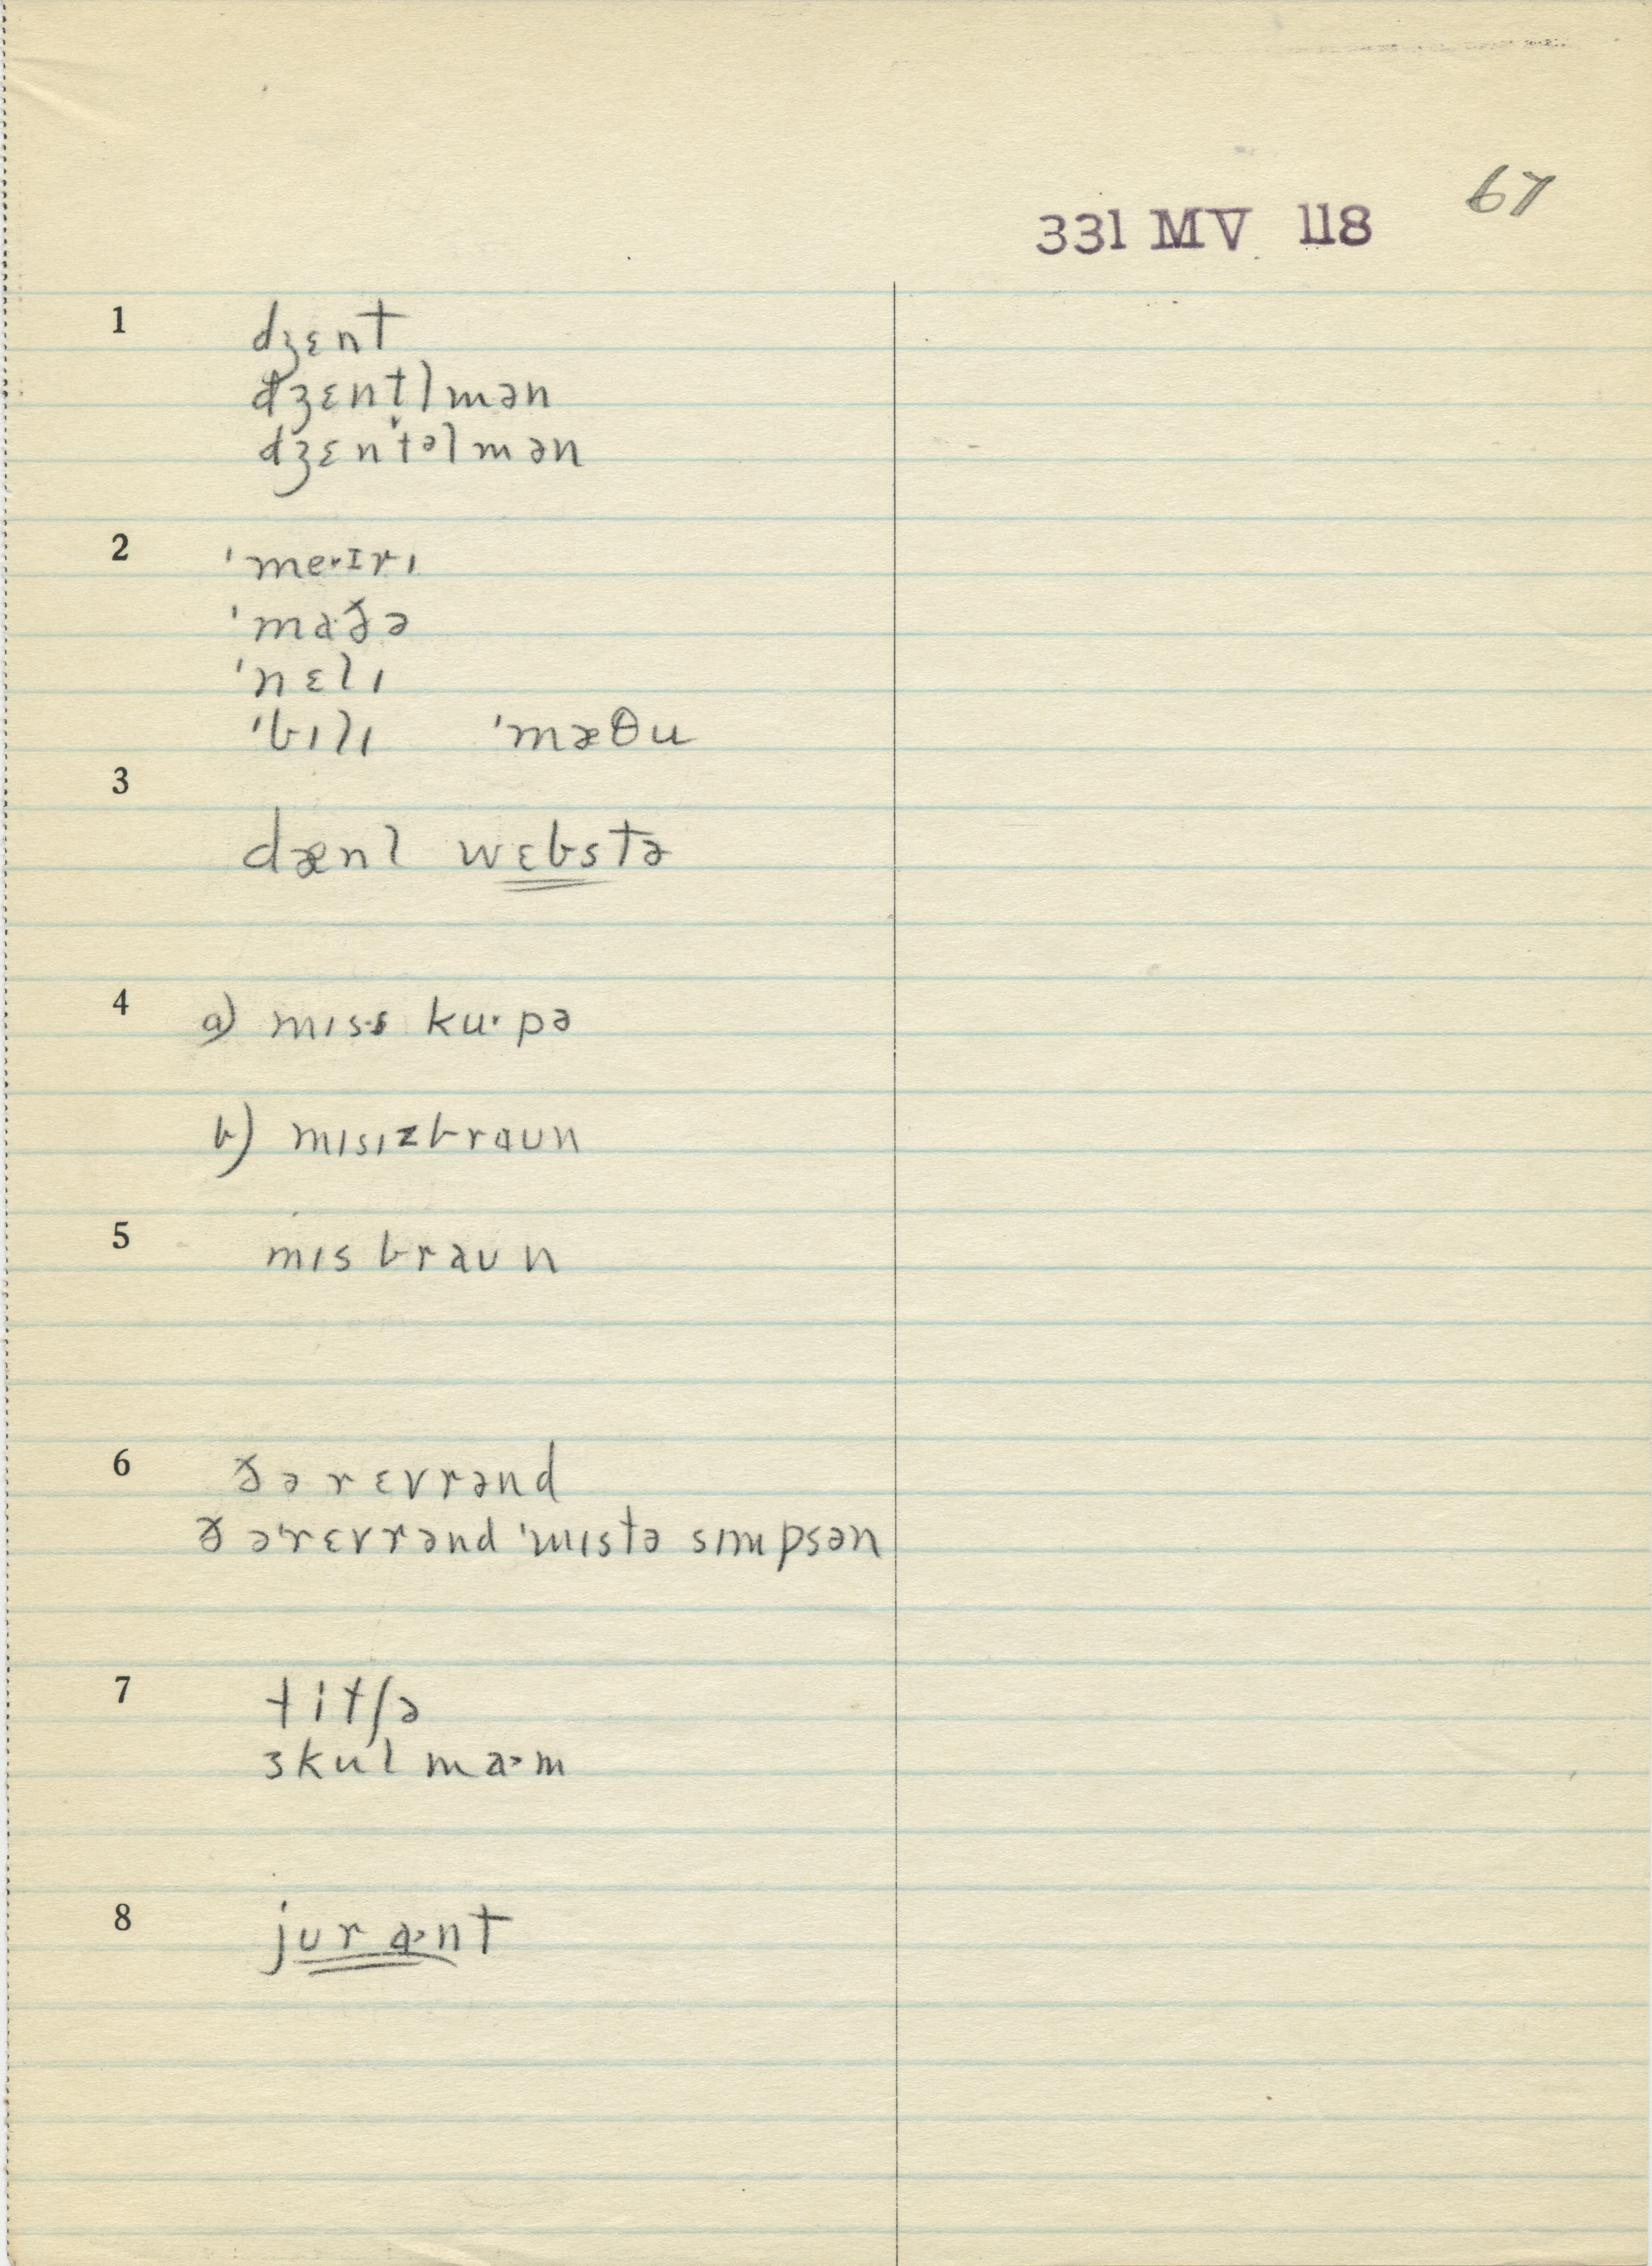 67
331 MV 118
1 dʒɛnt
dʒɛntl̩mən
dʒɛntᵊlmən
2 ˈme·ɪrɪ
ˈmaðə
ˈnɛlɪ
ˈbɪlɪ ˈmæθu
3
dænl wɛbstə
4 a) mɪss ku·pə
b) mɪsɪzbraʊn
5 mɪs braʊn
6 ðə rɛvrənd
ðəˈrɛvrənd ˈmɪstə sɪmpsən
7 titʃə
skul ma·m
8 jʊr a·nt